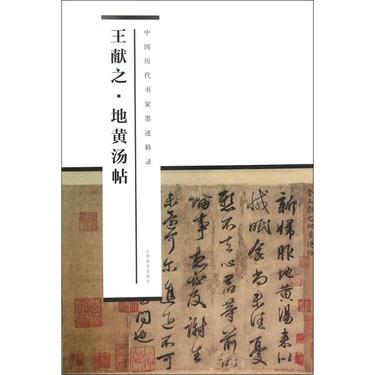 王献之·地黄汤帖
中国历代书家墨迹辑录
新婦服地黄湯来似
减眠食尚未佳憂
懸不去心君等前所
論事想必及謝生
未還可尔進退不可
問也